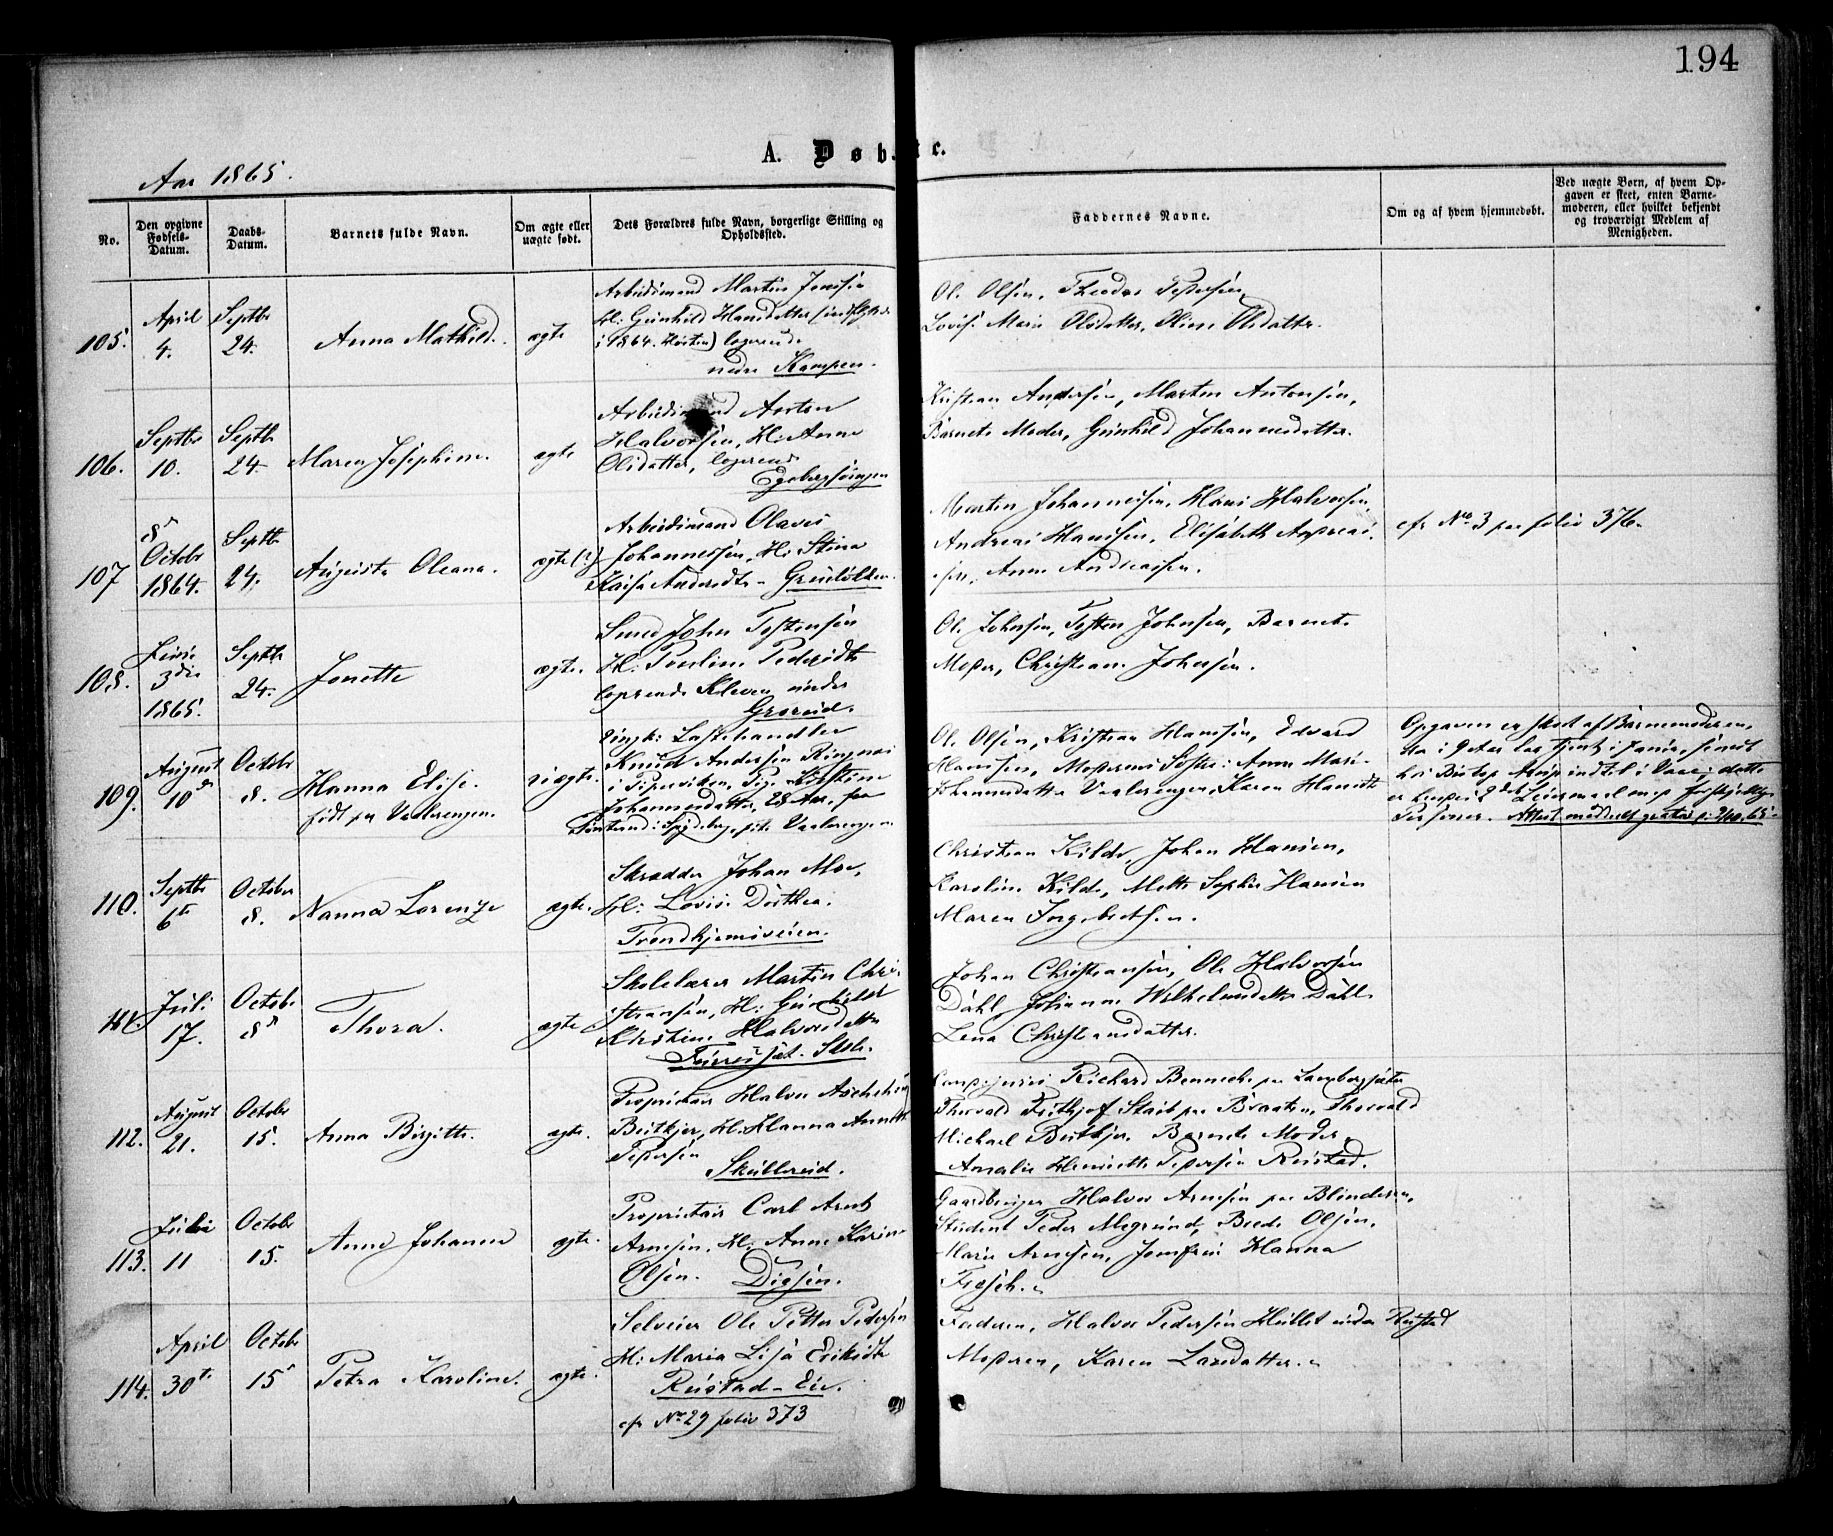 194
A. Døbte.
Aar 1865.
No.
Den opgivne Fødsels-Datum.
Daabs-Datum.
Barnets fulde Navn.
Om ægte eller uægte født.
Dets Forældres fulde Navn, borgerlige Stilling og Opholdssted.
Faddernes Navne.
Om og af hvem hjemmedøbt.
Ved uægte Børn, af hvem Opgaven er skeet, enten Barnemoderen, eller hvilket bekjendt og troværdigt Medlem af Menigheden.
105. April 4. Septbr 24. Anna Mathilde. ægte
Arbeidsmand Martin
H: Gunhild Hansdatter
i 1864. Horten) logerende
nedre Kampen.
Ole Olsen, Theodor Pedersen,
Lovise Marie Olsdatter, Oline Olsdatter.
106. Septbr 10. Septb 24. Maren Josephine. ægte
Arbeidsmand Anton
Halvorsen, H: Anne
Olsdatter, logerende
Egebergsvangen
Kristian Andersen, Martin Antonsen,
Barnets Moder, Gunhild Johannesdatter.
107 8 October 1864. Septb 24. Augusta Oleana. ægte(?)
Arbeidsmand Olaves
Johannessen, H: Stina
Kaisa Andersdtr
Martin Johannesen, Hans Halvorsen,
Andreas Hansen, Elisabeth Andreas-
sen, Anne Andreassen.
cfr No 3 paa folio 376.
108. Juni 3die 1865. Septb 24. Jonette ægte.
Smed John Tostensen
H: Pauline Pedersdtr
logerende Kleven under
Grorud.
Ole Johnsen, Tosten Johnsen, Barnets
Moder, Christiane Johnsen.
109. August 10de Octobr 8. Hanna Elise. født paa Vaalerengen. uægte.
Ungk: Lastehandler
Knud Andersen
i Pipervigen, Pige Kirstine
Johannesdatter, 28 Aar, fra
i Spydeberg, p.t. Vaalerengen
Ole Olsen, Kristian Hansen, Edvard
Hansen, Moderens Søster: Anne Marie
Johannesdatter Vaalerengen, Karen Hansdt
Opgaven er skeet af Barnemoderen,
Personer. Attest meddeelt gratis
110. Septbr 6te October 8. Nanna Lorenze ægte.
Skrædder Johan Moe,
H: Lovise Dorthea.
Trondhjemsveien.
Christian Kilde, Johan Hansen,
Karoline Kilde, Mette Sophie Hansen
Maren Ingebretsen.
111. Juli 17. Octobr 8 Thora. ægte
Skolelærer Martin Chri-
stiansen, H: Gunhild
Kristine Halvorsdatter
Furuset Skole.
Johan Christiansen, Ole Halvorsen
Dahl, Johanne Wilhelmsdatter Dahl
Lena Christiansdatter.
112. August 21. October 15. Anna Birgitte. ægte.
Proprietair Halvor
H: Hanna Annette
Petersen
Skullerud.
Richard Bennecke paa Lambergsæter
Thorvald Frithjof paa Braaten, Thorvald
Michael Barnets Moder,
Amalie Henriette Petersen Rustad.
113. Juli 11 Octobr 15. Anne Johanne ægte.
Proprietair Carl Arndt
Arnesen, H: Anne Karine
Olsen. Disen.
Gaardbruger Halvor Arnesen paa Blindern,
Student Peder Bredo Olsen,
Marie Arnesen, Jomfru Hanna
114. April 30te Octobr 15 Petra Karoline. ægte.
Selveier Ole Petter Pedersen
H: Maria Lisa Eriksdtr
Rustad-Eie.
cfr No 29 folio 373
Faderen, Halvor Pedersen Hullet under Rustad
Moderen, Karen Larsdatter.